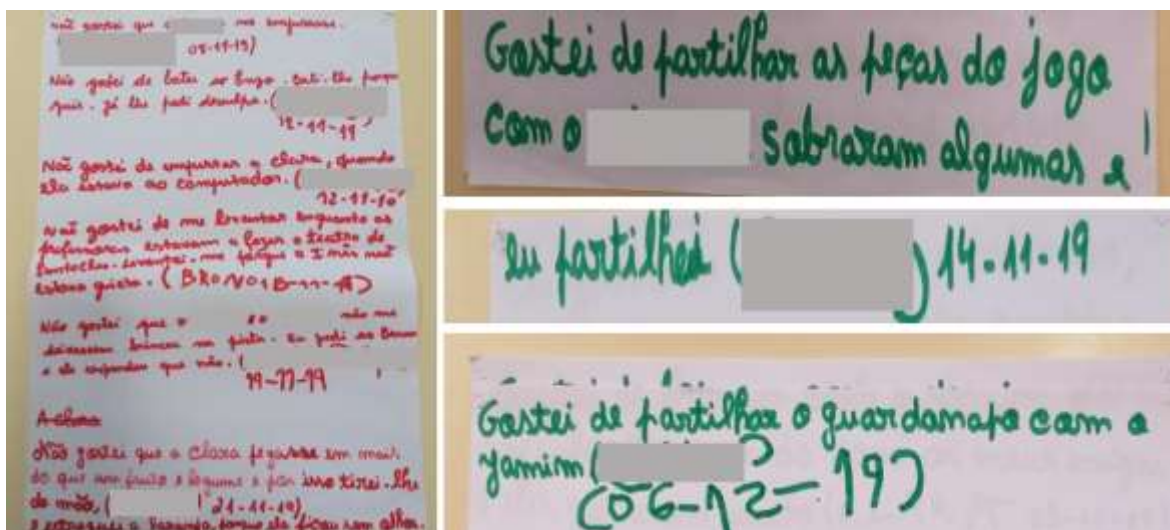 não gostei que me empurrasse.
05-11-19)
Não gostei de bater ao Hugo. Bati-lhe porque
quis. já lhe pedi desculpa. (
12-11-19)
Não gostei de empurrar a Clara, quando
ela estava ao computador. (
12-11-19
não gostei de me levantar enquanto as
professoras estavam a fazer o teatro de
fantoches. Levantei-me porque a não
estava quieta. (
Não gostei que o não me
deixassem brincar na pista. Eu pedi ao Bruno
e ele respondeu que não. (
19-11-19
A clara
Não gostei que a Clara pegasse em mais
do que um fruto e legume e por isso tirei-lhe
da mão, ( 21-11-19).
e estraguei a laranja, porque ela ficou sem olhos.
Gostei de partilhar as peças do jogo
com o sobraram algumas e
eu partilhei ( ) 14-11-19
Gostei de partilhar o guardanapo com o
yamim (
(06-12-19)